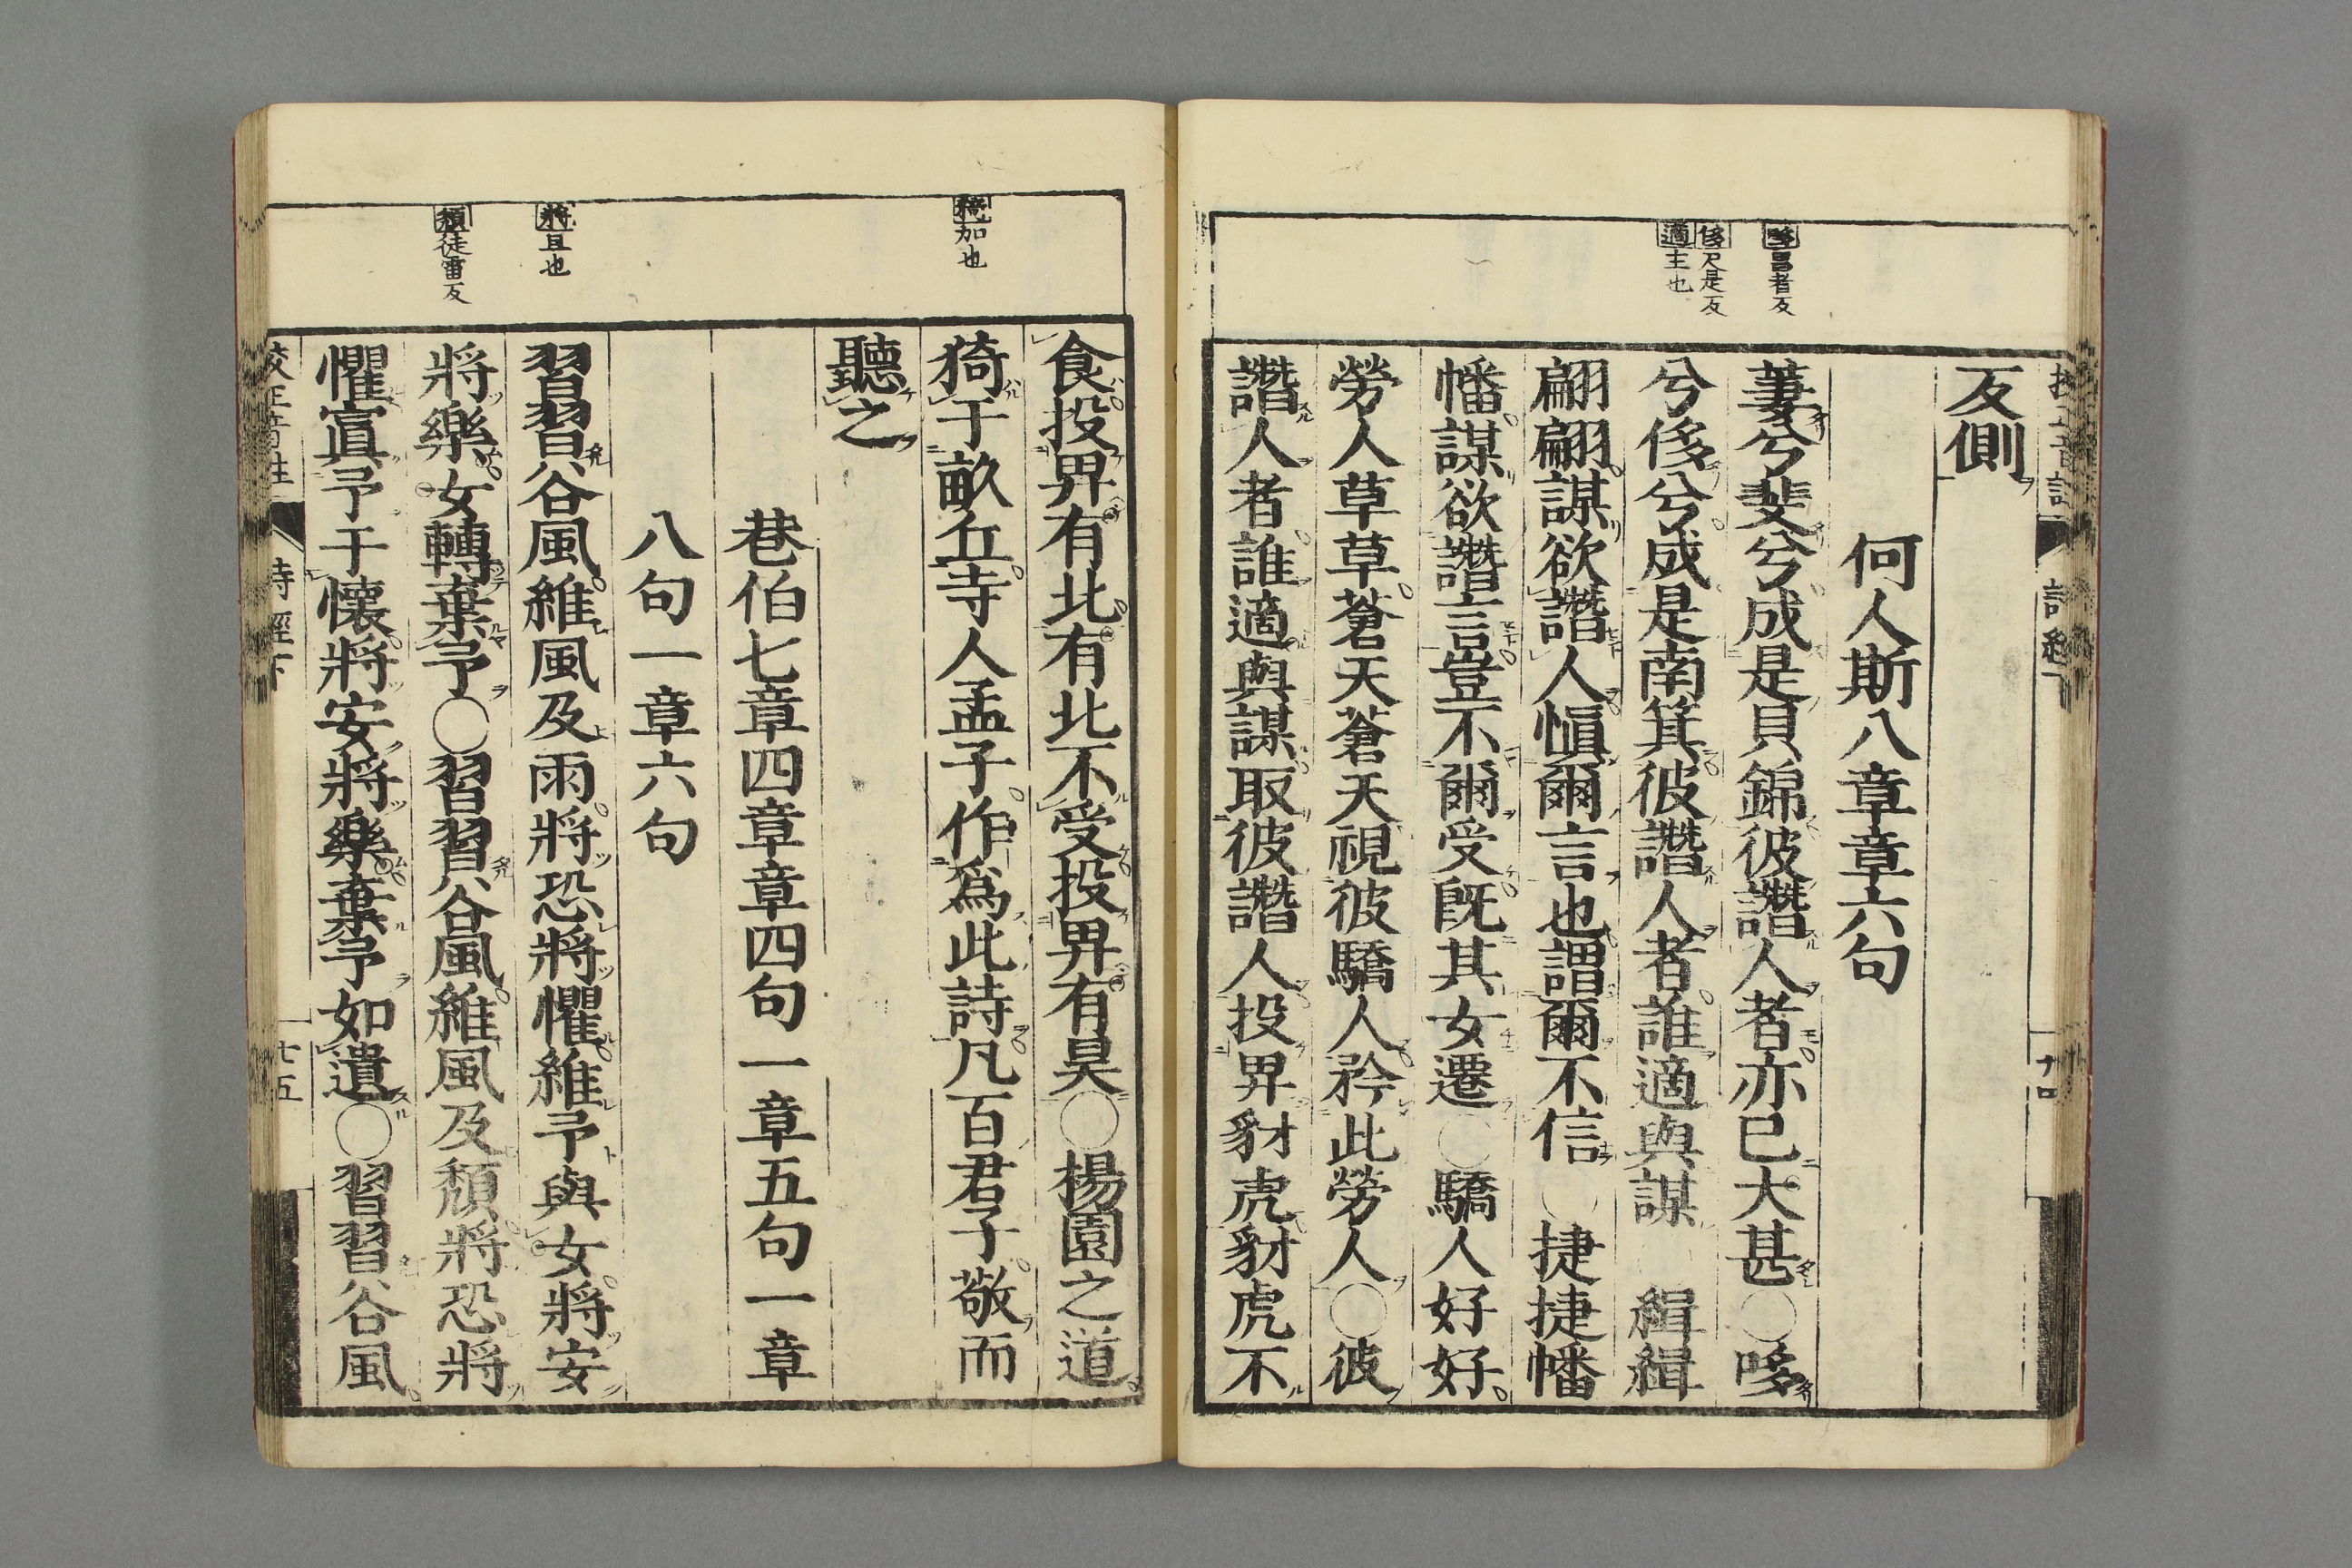 哆昌者反
侈尺是反
適主也
反側
何人斯八章章六句
萋兮斐兮成是貝錦彼譖人者亦已大甚○哆
兮侈兮成是南箕彼譖人者誰適與謀○緝緝
翩翩謀欲譖人愼爾言也謂爾不信○捷捷幡
幡謀欲譖言豈不爾受既其女遷○驕人好好
勞人草草蒼天蒼天視彼驕人矜此勞人○彼
譖人者誰適與謀取彼譖人投畀豺虎豺虎不
猗加也
將且也
頹徒雷反
食投畀有北有北不受投畀有昊○楊園之道
猗于畝丘寺人孟子作爲此詩凡百君子敬而
聽之
巷伯七章四章章四句一章五句一章
八句一章六句
習習谷風維風及雨將恐將懼維予與女將安
將樂女轉棄予○習習谷風維風及頹將恐將
懼寘予于懷將安將樂棄予如遺○習習谷風
校正音註 詩經下 廿五